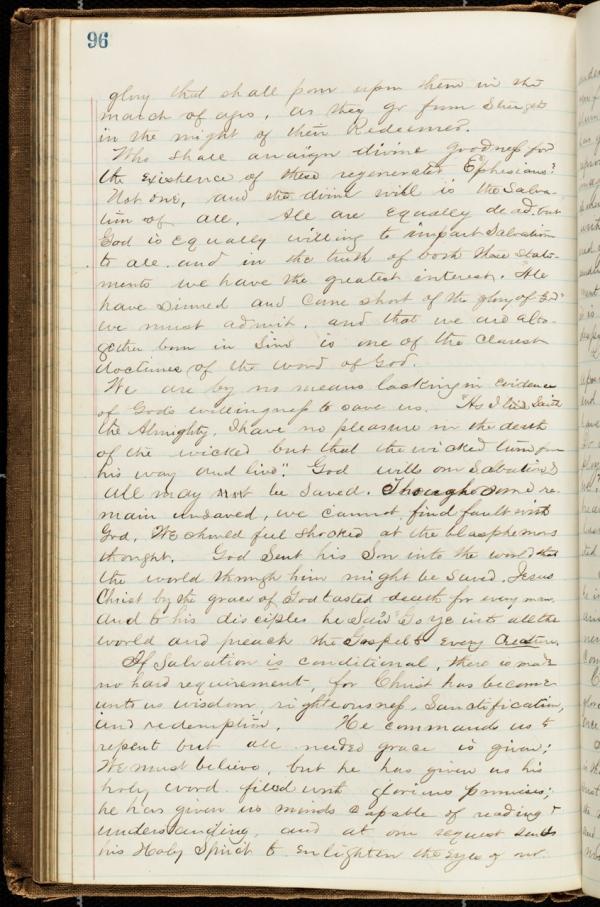 96
glory that shall pour upon them in the
march of ages, as they go from Strength
in the might of their Redeemer.
Who shall arraign divine goodness for
the existence of these regenerated Ephesians?
Not one, and the divine will is the Salva-
tion of all. All are equally dead, but
God is equally willing to impart Salvation
to all. and in the truth of both these state-
ments we have the greatest interest. "All
have Sinned and Come short of the glory of God"
we must admit. and that we are alto-
gether born in Sins is one of the clearest
doctrines of the word of God.
We are by no means lacking in Evidence
of Gods willingness to save us. "As I live Saith
the Almighty, I have no pleasure in the death
of the wicked but that the wicked turn from
his way and live". God wills our Salvation
All may not be saved. Though some re-
main unsaved, we cannot find fault with
God, We should feel shocked at the blasphemous
thought. God Sent his Son into the world that
the world through him might be saved. Jesus
Christ by the grace of God tasted death for every man,
and to his disciples he Said "Go ye into all the
world and preach the Gospel to every Creature
If Salvation is conditional, there is made
no hard requirement, for Christ has become
unto us wisdom, righteousness, Sanctification,
and redemption. He commands us to
repent but all needed grace is given;
We must believe, but he has given us his
holy word filled with glorious promises;
he has given us minds capable of reading &
understanding, and at our request sends
his Holy Spirit to Enlighten the Eyes of our